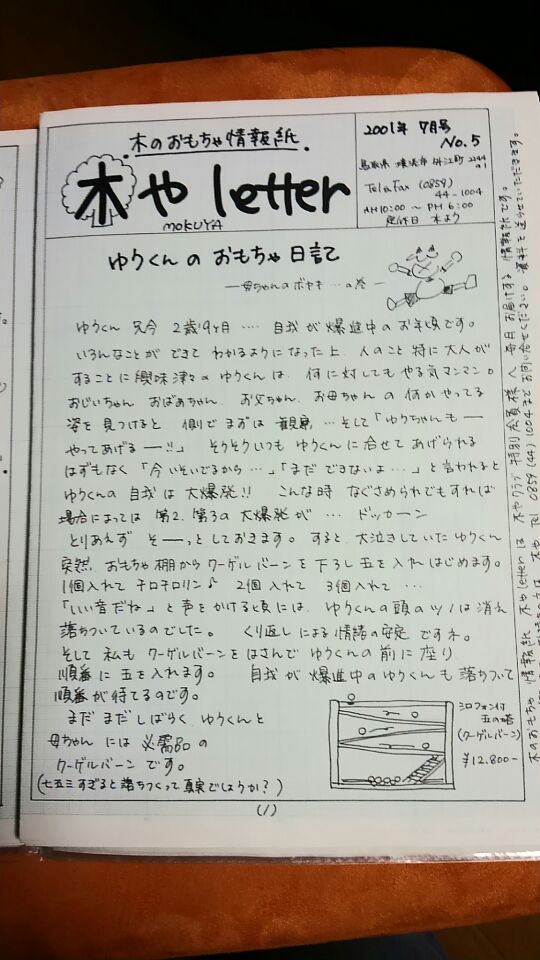 木のおもちゃ情報紙
木や letter
MOKUYA
2001年 7月号
No.5
鳥取県 境港市 外江町 2244
Tel & Fax (0859)
44-1004
AM10:00 〜 PM 6:00
定休日 木よう
ゆうくんの おもちゃ日記
―母ちゃんのボヤキ…の巻―
ゆうくん 只今 2歳9ヶ月 …. 自我が爆進中のお年頃です。
いろんなことが できて わかるようになった上、人のこと 特に大人が
することに興味津々 ゆうくんは、何に対しても やる気マンマン。
おじいちゃん おばあちゃん、お父ちゃん、お母ちゃんの 何かやってる
姿を 見つけると 側で まずは 観察 …そして「ゆうちゃんも―
やってあげる―!!」 そうそういつも ゆうくんに合せて あげられる
はずもなく「今 いそいでるから…」「まだ できないよ…」と言われると
ゆうくんの 自我は 大爆発!! こんな時 なぐさめられでもすれば
場合によっては 第2、第3の大爆発が … ドッカーン
とりあえず そ―っとしておきます。すると、大泣きしていた ゆうくん
突然、おもちゃ棚から クーゲルバーン を下ろし 玉を入れはじめます。
1個入れて チロチロリン♪ 2個 入れて 3個入れて …
「いい音だね」と声をかける頃には、ゆうくんの頭のツノは消え
落ちついているのでした。 くり返しによる情緒の安定 ですネ。
そして 私も クーゲルバーンをはさんで ゆうくんの前に座り
順番に 玉を入れます。 自我が爆進中のゆうくんも 落ちついて
順番が 待てるのです。
まだ まだ しばらく ゆうくんと
母ちゃんには 必需品の
クーゲルバーン です。
(七五三すぎると 落ちつくって 真実でしょうか?)
シロフォン付
玉の塔
(クーゲルバーン)
¥12.800-
(1)
木のおもちゃ 情報紙 木や letterは 木やクラブ 特別会員様へ 毎月お届けする 情報紙です。
木や Tel 0859(44)1004まで お問い合せください。資料を送らせていただきます。